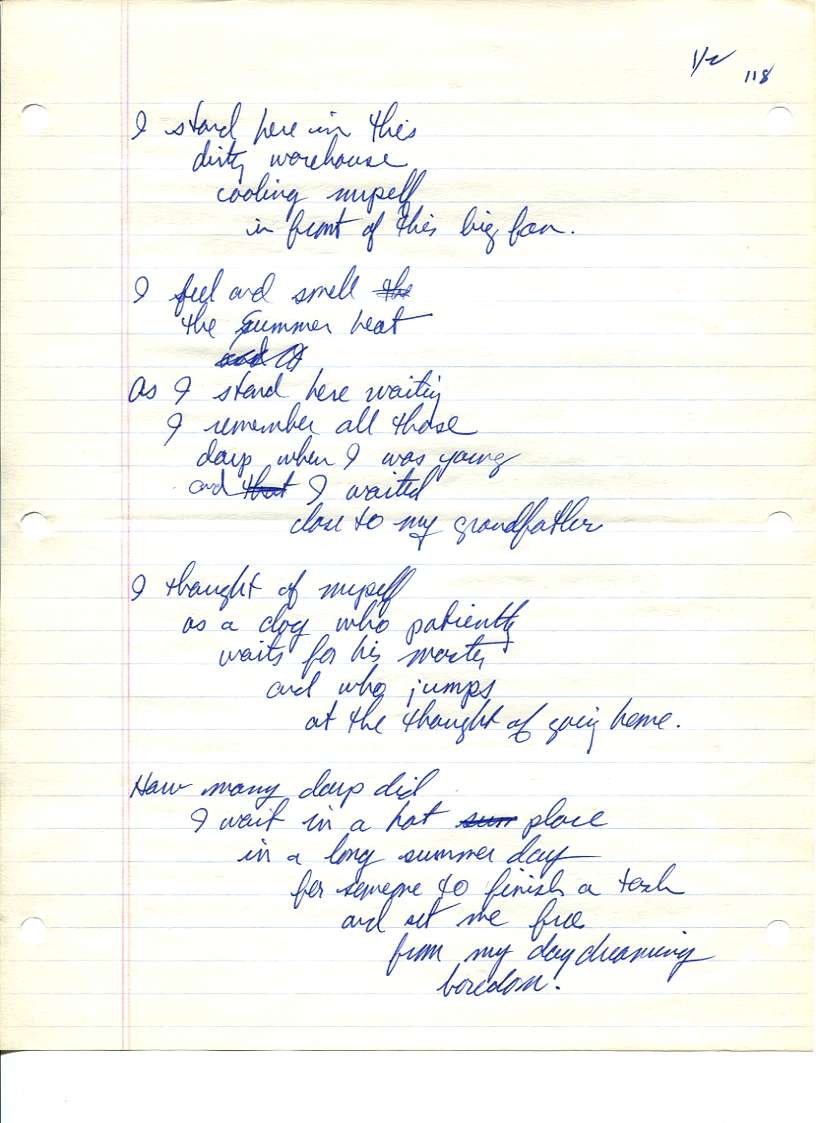 1/2
118
I stand here in this
dirty warehouse
cooling myself
in front of this big fan.
I feel and smell the
the summer heat
and
As I stand here waiting
I remember all those
days when I was young
and that I waited
close to my grandfather
I thought of myself
as a dog who patiently
waits for his master
and who jumps
at the thought of going home.
How many days did
I wait in a hot sun place
in a long summer day
for someone to finish a task
and set me free
from my daydreaming
boredom.